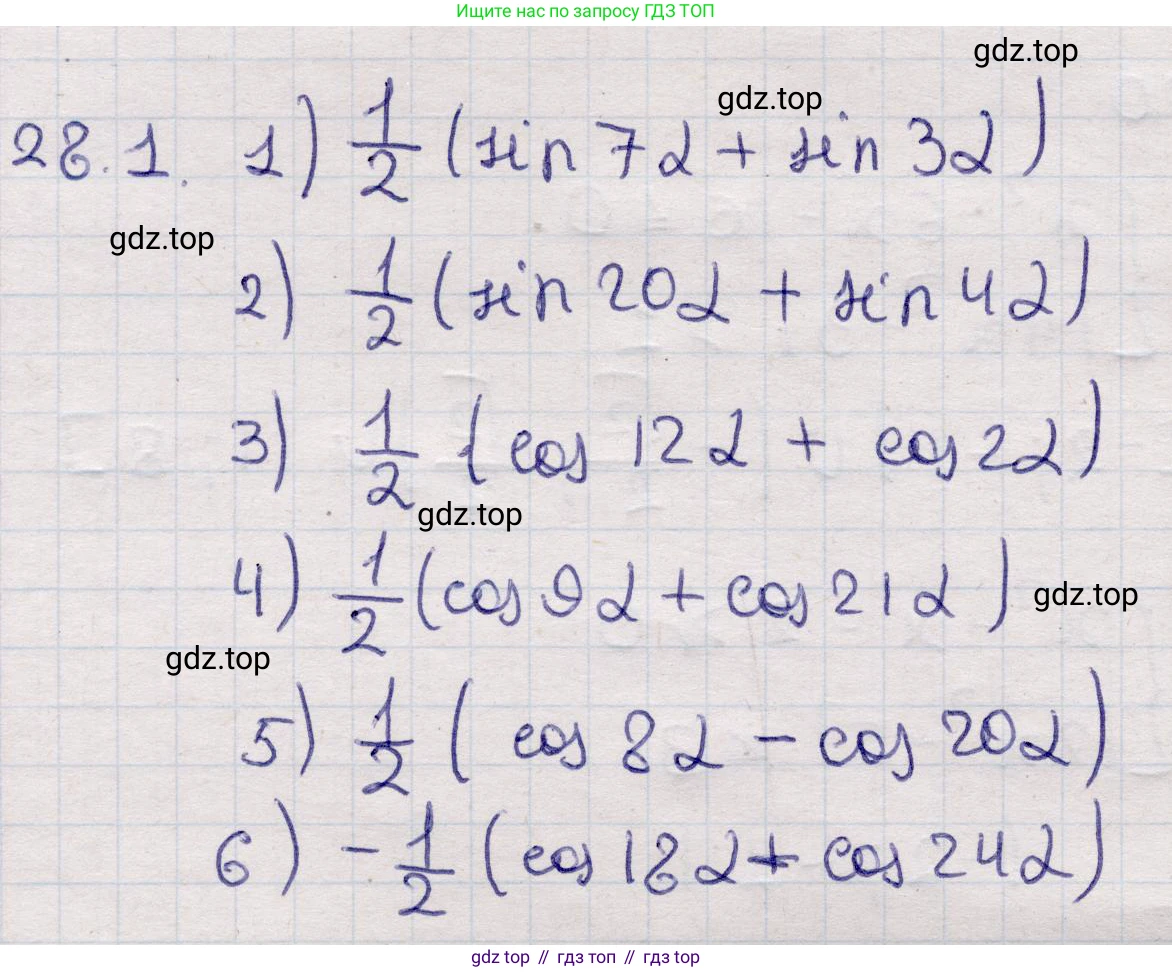 Ищите нас по запросу ГДЗ ТОП
gdz.top
gdz.top
28.1. 1) 1/2 (sin 7α + sin 3α)
gdz.top
2) 1/2 (sin 20α + sin 4α)
3) 1/2 (cos 12α + cos 2α)
gdz.top
4) 1/2 (cos 9α + cos 21α)
gdz.top
gdz.top
5) 1/2 (cos 8α - cos 20α)
6) -1/2 (cos 18α + cos 24α)
gdz top // гдз топ // гдз top